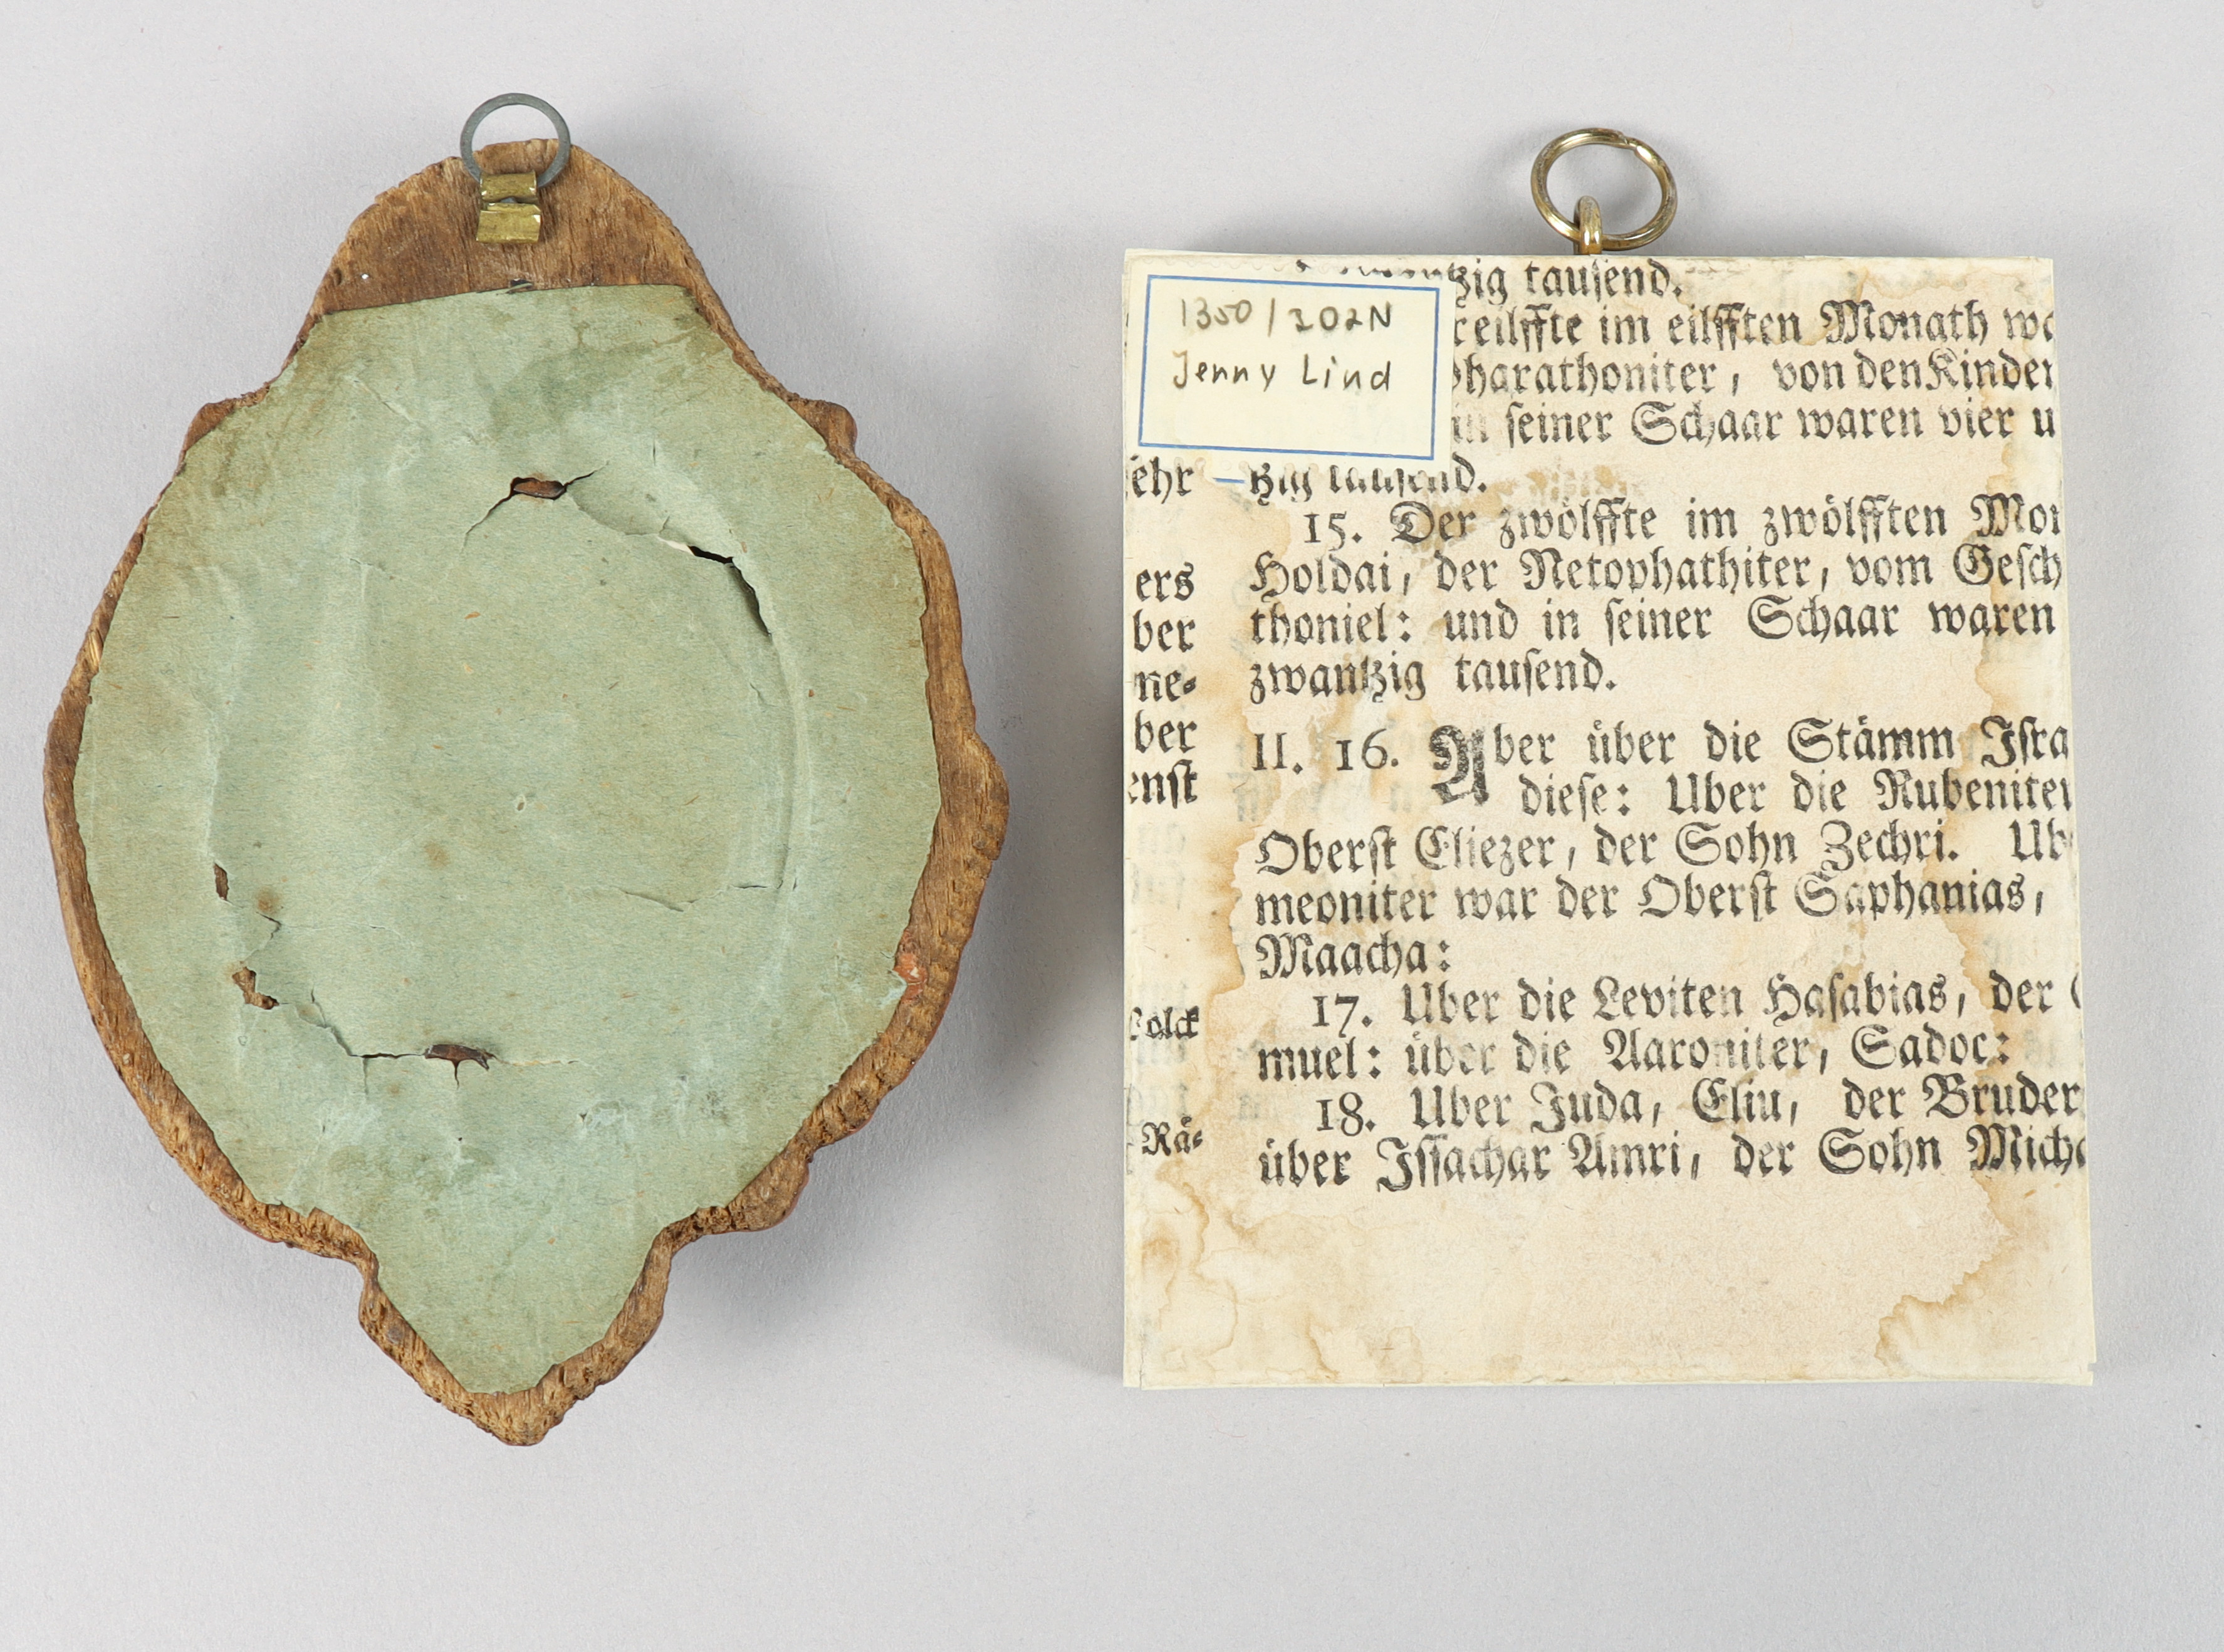 1350/202N
Jenny Lind
tzig tausend.
eilffte im eilfften Monath
pharathoniter, von den Kinder
in seiner Schaar waren vier u
ehr tzig tausend.
15. Der zwölffte im zwölfften Mon
ers Holdai, der Netophathiter, vom Gesch
ber thoniel: und in seiner Schaar waren
ne- zwantzig tausend.
ber II. 16. Aber über die Stämm Isra
enst diese: Uber die Rubeniter
Oberst Eliezer, der Sohn Zechri. Ub
meoniter war der Oberst Saphanias,
Maacha:
olck 17. Uber die Leviten Hasabias, der
muel: über die Aaroniter, Sadoc:
18. Uber Juda, Eliu, der Bruder
Rä- über Issachar Amri, der Sohn Micha